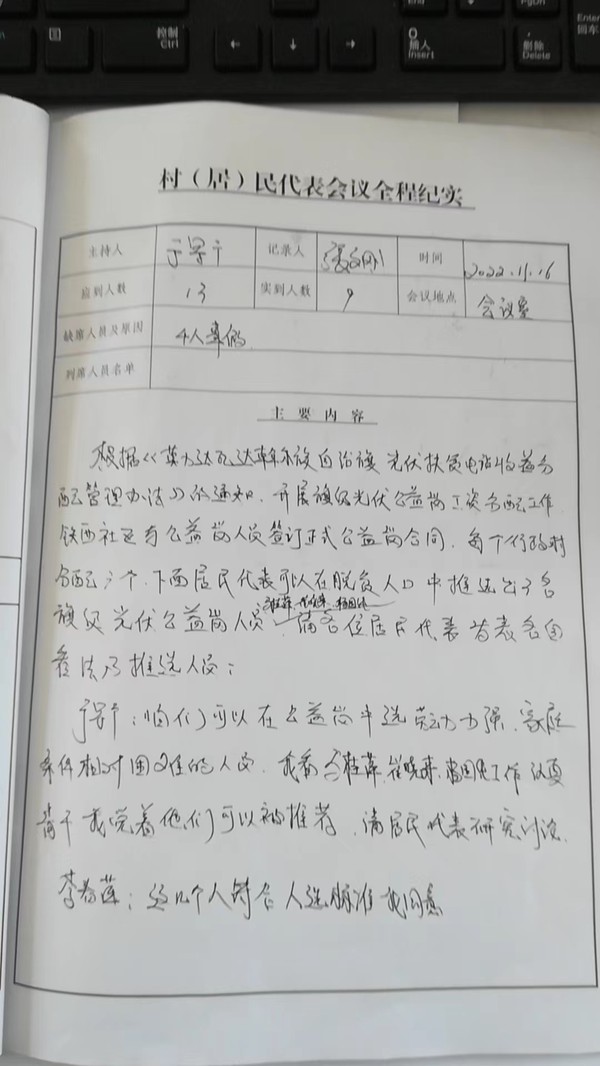 控制
Ctrl
←
↓
→
0
插入
Insert
.
删除
Delete
Enter
回车
PgDn
村（居）民代表会议全程纪实
主持人 记录人 时间 2022.11.16
应到人数 13 实到人数 9 会议地点 会议室
缺席人员及原因 4人事假
列席人员名单
主要内容
根据《莫力达瓦达斡尔族自治旗光伏扶贫电站收益分
配管理办法》的通知，开展旗级光伏公益岗工资分配工作，
铁西社区与公益岗人员签订正式公益岗合同，每个行政村
分配3个，下面居民代表可以在脱贫人口中推选出3名
旗级光伏公益岗人员，请各位居民代表发表各自
看法及推选人员：
咱们可以在公益岗中选劳动力强，家庭
条件相对困难的人员，我看 工作认真
肯干我觉着他们可以被推荐，请居民代表研究讨论。
这几个人符合人选标准我同意